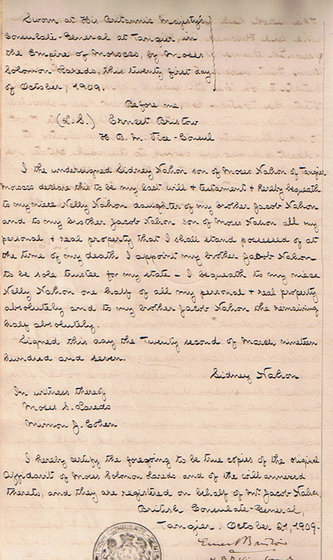 Sworn at His Britannic Majesty's
Consulate-General at Tangier, in
the Empire of Morocco, by Moses
Solomon Laredo, this twenty first day
of October, 1909.
Before me,
(L.S.) Ernest Bristow
H. B. M. Vice-Consul
I the undersigned Sidney Nahon son of Moses Nahon of Tangier
Morocco declare this to be my last will & testament & hereby bequeath
to my niece Nelly Nahon daughter of my brother Jacob Nahon
and to my brother Jacob Nahon son of Moses Nahon all my
personal & real property that I shall stand possessed of at
the time of my death I appoint my brother Jacob Nahon
to be sole trustee for my state – I bequeath to my niece
Nelly Nahon one half of all my personal & real property
absolutely and to my brother Jacob Nahon the remaining
half absolutely.
Signed this day the Twenty second of March nineteen
hundred and seven.
Sidney Nahon
In witness thereof
Moses S. Laredo
Mimon J. Cohen
I hereby certify the foregoing to be true copies of the original
Affidavit of Moses Solomon Laredo and of the will annexed
thereto, and they are registered on behalf of Mr. Jacob Nahon
British Consulate-General,
Tangier, October 21, 1909.
Ernest Bristow